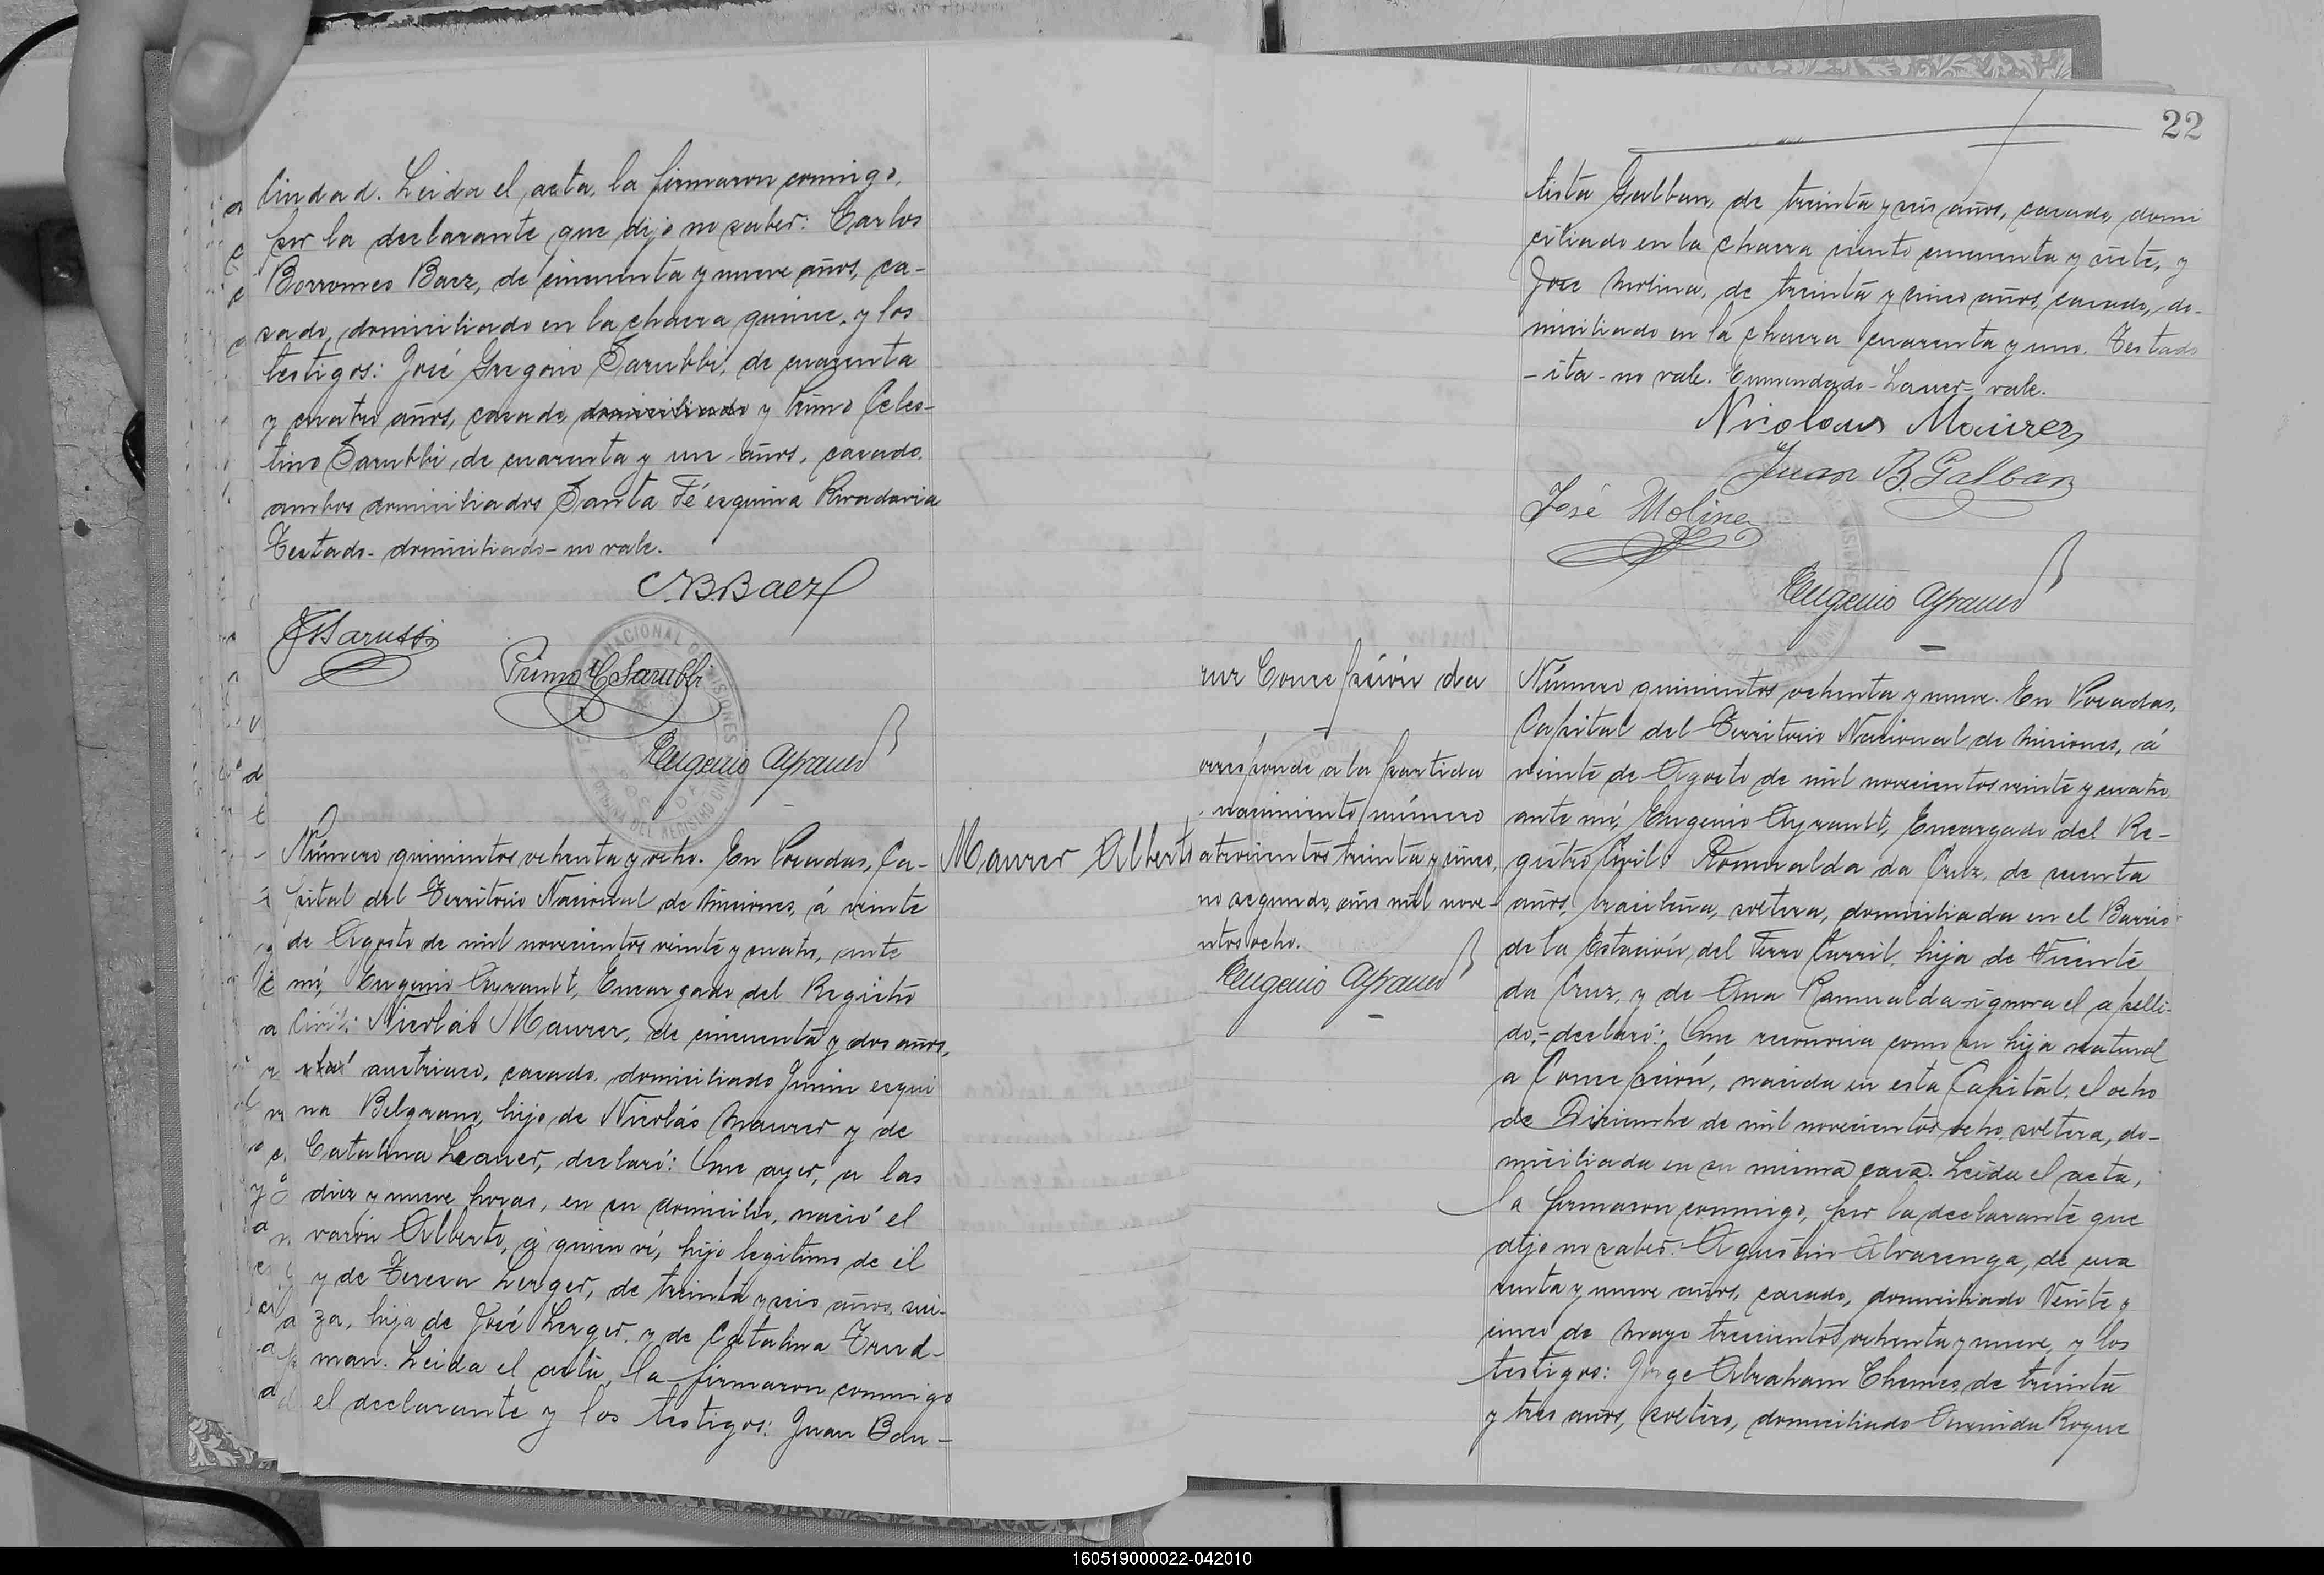 Ciudad. Leida el acta, la firmaron conmigo,
por la declarante que dijo no saber: Carlos
Borromeo Baez, de cincuenta y nueve años, ca-
sado, domiciliado en la chacra quince, y los
testigos: José Gregorio Sarubbi, de cuarenta
y cuatro años, casado, domiciliado y Primo Celes-
tino Sarubbi, de cuarenta y un años, casado,
ambos domiciliados Santa Fé esquina Rivadavia
Testado - domiciliado - no vale.
C.B. Baez
Primo C Sarubbi
Eugenio Ayrault
Número quinientos ochenta y ocho. En Posadas, Ca-
pital del Territorio Nacional de Misiones, á veinte
de Agosto de mil novecientos veinte y cuatro, ante
mí, Eugenio Ayrault, Encargado del Registro
Civil: Nicolás Maurer, de cincuenta y dos años,
austriaco, casado, domiciliado Junin esqui
na Belgrano, hijo de Nicolás Maurer y de
Catalina Lauer, declaró: Que ayer, a las
diez y nueve horas, en su domicilio, nació el
varón Alberto, á quien ví, hijo legítimo de él
y de Teresa Lerger, de treinta y seis años, sui-
za, hija de José Lerger, y de Catalina Trud-
man. Leida el acta, la firmaron conmigo
el declarante y los testigos: Juan Bau-
Maurer Alberto
22
tista Galban, de treinta y seis años, casado, domi
ciliado en la chacra ciento cincuenta y siete, y
José Molina, de treinta y cinco años, casado, do-
miciliado en la chacra cuarenta y uno. Testado
- ita - no vale. Enmendado - Lauer - vale.
Nicolaus Maurer
Juan B. Galban
José Molina
Eugenio Ayrault
ruz Concepción da
orresponde a la partida
nacimiento número
atrocientos treinta y cinco,
mo segundo, año mil nove-
ntos ocho.
Eugenio Ayrault
Número quinientos ochenta y nueve. En Posadas,
Capital del Territorio Nacional de Misiones, á
veinte de Agosto de mil novecientos veinte y cuatro,
ante mí, Eugenio Ayrault, Encargado del Re-
gistro Civil: Romualda da Cruz, de
años, brasileña, soltera, domiciliada en el Barrio
de la Estación del Ferro Carril, hija de Vicente
da Cruz, y de Ana Romualda - ignora el apelli-
do, - declaró: Que reconocía como su hija natural
a Concepción, nacida en esta Capital, el ocho
de Diciembre de mil novecientos ocho, soltera, do-
miciliada en su misma casa. Leida el acta,
la firmaron conmigo, por la declarante que
dijo no saber: Agustin Alvarenga, de cua
renta y nueve años, casado, domiciliado Veinte y
cinco de Mayo trescientos ochenta y nueve, y los
testigos: Jorge Abraham Chemes, de treinta
y tres años, soltero, domiciliado Avenida Roque
160519000022-042010